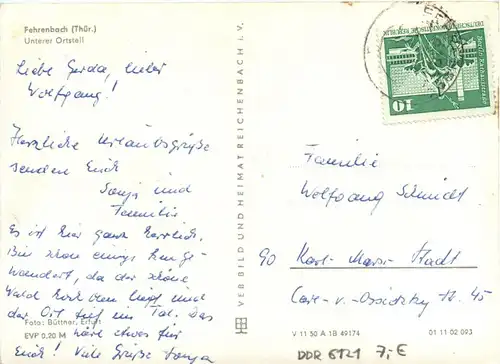 Fehrenbach (Thür.)
Unterer Ortsteil
Liebe Gerda, lieber
Wolfgang!
Herzliche Urlaubsgrüße
senden Euch
Sonja und
Familie
Es ist hier ganz herrlich.
Bin schon einige
wandert, da der schöne
Wald
der Ort tief im Tal. Das
wäre etwas für
Euch! Viele Grüße Sonja
Foto: Büttner, Erfurt
EVP 0,20 M
VEB BILD UND HEIMAT REICHENBACH i. V.
DEUTSCHE DEMOKRATISCHE REPUBLIK
10
Familie
Wolfgang Schmidt
90 Karl-Marx-Stadt
Care-v.-Ossietzky Str. 45
V 11 50 A 1B 49174
01 11 02 093
DDR 6121 7,- E